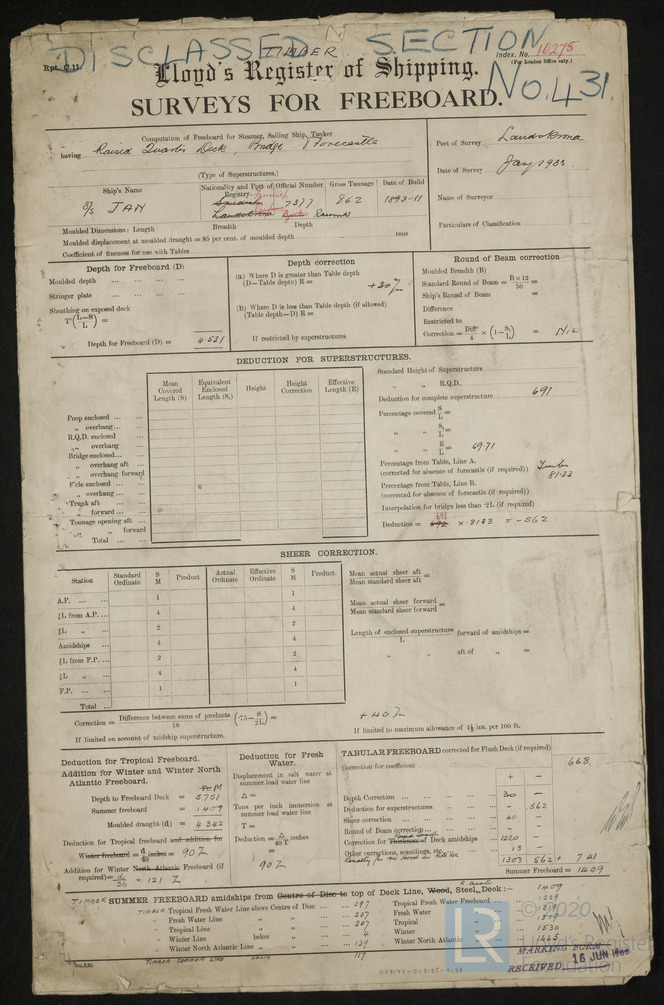 DISCLASSED SECTION
TIMBER
No. 431.
Rpt. C.11.
Index. No. 10275
(For London Office only.)
Lloyd's Register of Shipping.
SURVEYS FOR FREEBOARD.
Computation of Freeboard for Steamer, Sailing Ship, Tanker
having Raised Quarter Deck, Bridge & Forecastle
(Type of Superstructures.)
Port of Survey Landskrona
Date of Survey Jany 1933
Name of Surveyor
Particulars of Classification
Ship's Name
Nationality and Port of Registry.
Official Number
Gross Tonnage
Date of Build
S/S JAN
Finnish
Swedish
Landskrona
7377
Rauma
862
1893-11
Moulded Dimensions: Length Breadth Depth
Moulded displacement at moulded draught = 85 per cent. of moulded depth tons
Coefficient of fineness for use with Tables
Depth for Freeboard (D)
Moulded depth ... ... ... ...
Stringer plate ... ... ... ...
Sheathing on exposed deck
T(L-S/L) =
Depth for Freeboard (D) = 4.531
Depth correction
(a) Where D is greater than Table depth
(D-Table depth) R = +30%
(b) Where D is less than Table depth (if allowed)
(Table depth-D) R =
If restricted by superstructures
Round of Beam correction
Moulded Breadth (B)
Standard Round of Beam = B×12/50 =
Ship's Round of Beam =
Difference
Restricted to
Correction = Diffce/4 × (1-S₁/L) = NIL
DEDUCTION FOR SUPERSTRUCTURES.
Mean Covered Length (S)
Equivalent Enclosed Length (S₁)
Height
Height Correction
Effective Length (E)
Poop enclosed ... ...
" overhang ... ...
R.Q.D. enclosed ...
" overhang
Bridge enclosed ... ...
" overhang aft ...
" overhang forward
F'cle enclosed ... ...
" overhang ... ...
Trunk aft ... ...
" forward ... ...
Tonnage opening aft ...
" " forward
Total ... ...
Standard Height of Superstructure
" " R.Q.D.
Deduction for complete superstructure 691
Percentage covered S/L =
" " S₁/L =
" " E/L = 69.71
Percentage from Table, Line A.
(corrected for absence of forecastle (if required)) Timber 81.33
Percentage from Table, Line B.
(corrected for absence of forecastle (if required))
Interpolation for bridge less than ·2L (if required)
691
Deduction = 692 × .8133 = -562
SHEER CORRECTION.
Station
Standard Ordinate
S M
Product
Actual Ordinate
Effective Ordinate
S M
Product
A.P. ... ... 1 1
⅙L from A.P. ... 4 4
⅓L " ... 2 2
Amidships ... 4 4
⅓L from F.P. ... 2 2
⅙L " ... 4 4
F.P. ... ... 1 1
Total ... ...
Mean actual sheer aft / Mean standard sheer aft =
Mean actual sheer forward / Mean standard sheer forward =
Length of enclosed superstructure / L forward of amidships =
" " aft of " =
Correction = Difference between sums of products / 18 (·75-S/2L) = +40%
If limited on account of midship superstructure.
If limited to maximum allowance of 1½ ins. per 100 ft.
Deduction for Tropical Freeboard.
Addition for Winter and Winter North Atlantic Freeboard.
Depth to Freeboard Deck = 5.751
Summer freeboard = 1.409
Moulded draught (d) = 4.342
Deduction for Tropical freeboard and addition for
Winter freeboard = d/48 inches = 90%
Addition for Winter North Atlantic Freeboard (if
required) = d/36 = 121 %
Deduction for Fresh Water.
Displacement in salt water at summer load water line
Δ =
Tons per inch immersion at summer load water line
T =
Deduction = Δ/40 T inches
=
90%
TABULAR FREEBOARD corrected for Flush Deck (if required)
Correction for coefficient 668.
+ -
Depth Correction ... 30 -
Deduction for superstructures ... - 562
Sheer correction ... 40 -
Round of Beam correction ... - -
Correction for Thickness of Deck amidships ... 1220 -
Other corrections, scantlings, etc. ... 13 -
1303 562 + 741
Summer Freeboard = 1409
TIMBER SUMMER FREEBOARD amidships from Centre of Disc to top of Deck Line, Wood, Steel, Deck:— 1409
TIMBER Tropical Fresh Water Line above Centre of Disc ... ... 297
Fresh Water Line " " ... 207
Tropical Line " " ... 207
Winter Line below " ... 4
Winter North Atlantic Line " " ... 139
TIMBER SUMMER LINE above 117
Tropical Fresh Water Freeboard ... 1229
Fresh Water " ...
Tropical " ...
Winter " ... 1530
Winter North Atlantic " ... 1665
MARKING FORM
RECEIVED 16 JUN
LR
© 2020
Lloyd's Register
Foundation